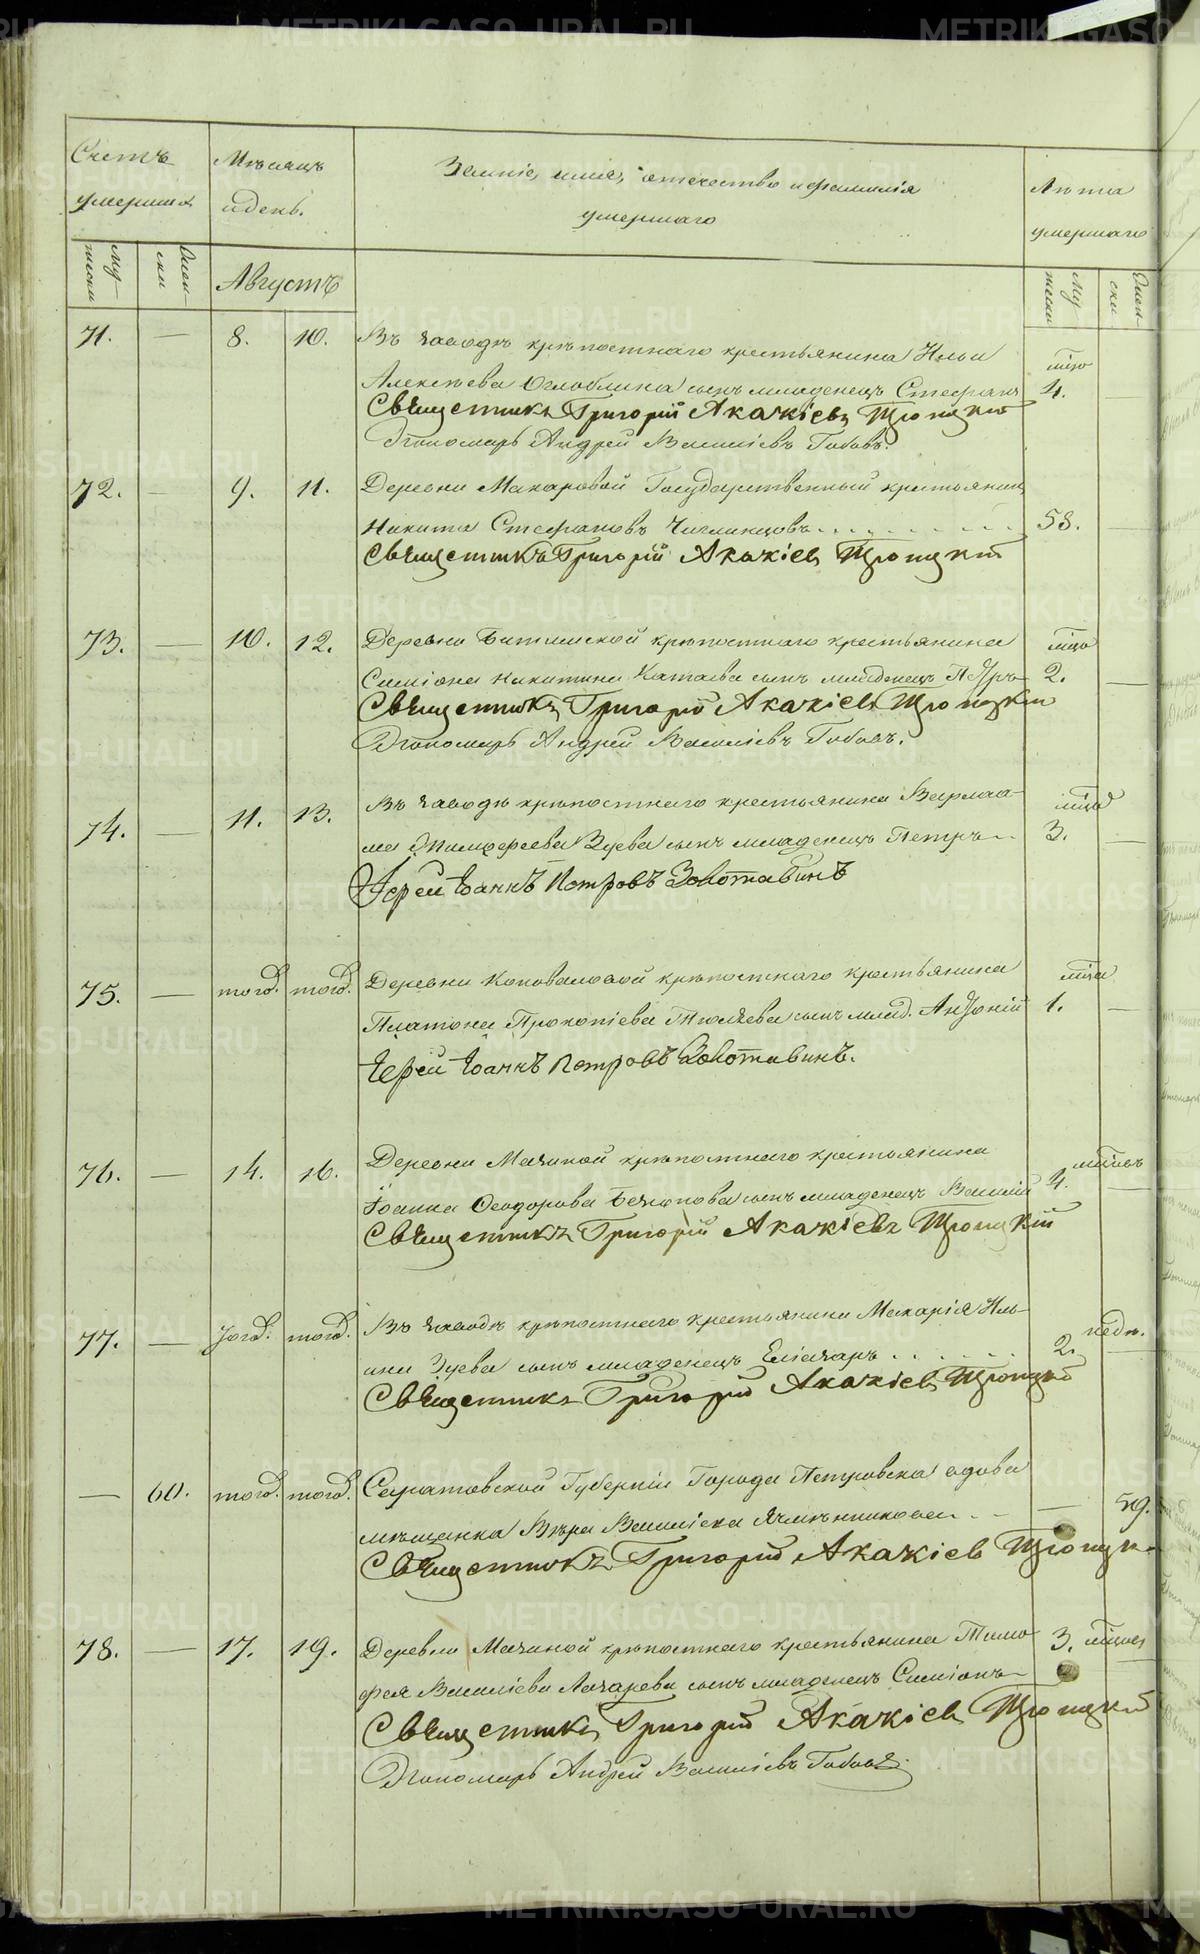 Счетъ умершихъ
Мѣсяцъ и день.
Званіе, имя, отечество и фамилія
умершаго
Лѣта умершаго
Мужески
Женски
Августъ
Мужески
Женски
71. — 8. 10. Въ заводѣ крѣпостнаго крестьянина Ильи мцо
Алексѣева Оглоблина сынъ младенецъ Стефанъ 4.
Священникъ Григорій Акакіевъ Троицкій
Пономарь Андрей Василіевъ
72. — 9. 11. Деревни Макаровой Государственный крестьянинъ
Никита Стефановъ 58.
Священникъ Григорій Акакіевъ Троицкій
73. — 10. 12. Деревни Битимской крѣпостнаго крестьянина мцо
Симіона Никитина Катаева сынъ младенецъ 2. —
Священникъ Григорій Акакіевъ Троицкій
Пономарь Андрей Василіевъ
74. — 11. 13. Въ заводѣ крѣпостнаго крестьянина Варлаа- мцо
ма Зуева сынъ младенецъ Петръ 3. —
Іерей Іоаннъ Петровъ Золотавинъ
75. — тогож. тогож. Деревни Коноваловой крѣпостнаго крестьянина мца
Платона Прокопіева сынъ млад. Анѳоній 1. —
Іерей Іоаннъ Петровъ Золотавинъ.
76. — 14. 16. Деревни Мачиной крѣпостнаго крестьянина
Іоанна Ѳеодорова сынъ младенецъ Василій 4. —
Священникъ Григорій Акакіевъ Троицкій
77. — тогож. тогож. Въ заводѣ крѣпостнаго крестьянина Макарія Иль- недѣ.
ина Зуева сынъ младенецъ Еліазаръ 2. —
Священникъ Григорій Акакіевъ Троицкій
— 60. тогож. тогож. Саратовской Губерніи Города Петровска вдова
мѣщанка Вѣра Василіева Ячменникова — 59.
Священникъ Григорій Акакіевъ Троицк
78. — 17. 19. Деревни Мачиной крѣпостнаго крестьянина Тимо- 3.
фея Василіева Лазарева сынъ младенецъ Симіонъ
Священникъ Григорій Акакіевъ Троицкій
Пономарь Андрей Василіевъ
METRIKI.GASO-URAL.RU